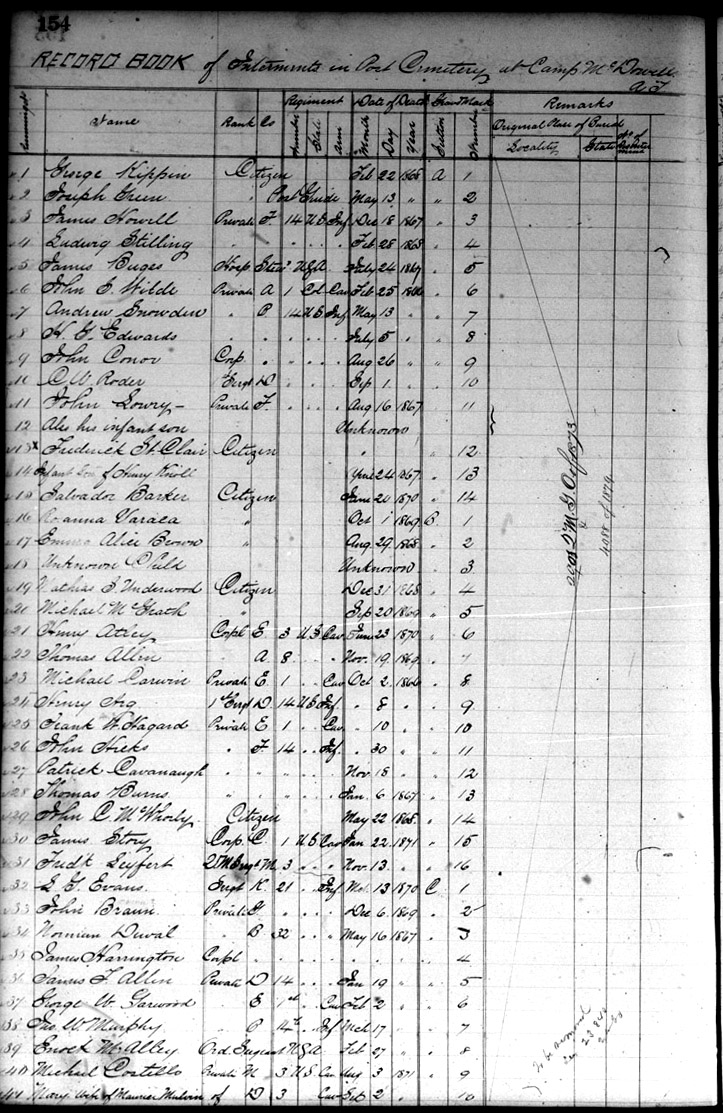 154
RECORD BOOK of Interments in Post Cemetery at Camp McDowell
A. T.
Regiment Date of Death Grave Mark Remarks
Name Rank Co Number State Arm Month Day Year Section Number Original Place of Burial
Locality State No of
1 George Kippen Citizen Feb 22 1868 A 1
2 Joseph Green " Post Guide May 13 " " 2
3 James Howell Private F. 14 U S Inf Dec 18 1867 " 3
4 Ludwig Stilling " " " " " Feb 28 1868 " 4
5 James Buges Hosp Stew? U.S.A. July 24 1867 " 5
6 John E. Wilde Private A 1 Cl Cav Feb 25 1866 " 6
7 Andrew Snowden " C 14 U S Inf May 13 " " 7
8 H. G. Edwards " " " " " July 5 " " 8
9 John Conov Corp " " " " Aug 26 " " 9
10 C. W. Roder Sergt D " " " Sep 1 " " 10
11 John Lowry - Private F. " " " Aug 16 1867 " 11
12 Also his infant son Unknown
13 x Frederick St. Clair Citizen " " 12
14 Infant Son of Henry Knoll 24 1867 " 13
15 Salvador Barker Citizen June 20 1870 " 14
16 Varaca " Oct 1 1869 B. 1
17 Emma Alice Brown " Aug 29 1868 " 2
18 Unknown Child Unknown " 3
19 Mathias S. Underwood Citizen Dec 31 1868 " 4
21 Michael McGrath Sep 20 1869 " 5
21 Henry Atley Corpl E 3 U S Cav June 23 1870 " 6
22 Thomas Allen " A 8 " " " Nov. 19 1869 " 7
23 Michael Carwin Private E. 1 " " Cav Oct 2 1866 " 8
24 Henry Arg 1st Sergt D. 14 U S Inf " 8 " " 9
25 Frank H. Hagard Private E. 1 " " Cav. " 10 " " 10
26 John Hicks " F. 14 " " Inf. " 30 " " 11
27 Patrick Cavanaugh " " " " " Nov 18 " " 12
28 Thomas Burns " " " " " Jan. 6 1867 " 13
29 John C. McWhorly Citizen May 22 1868 " 14
30 James Story Corp. C. 1 U S Cav Jan 22 1871 " 15
31 Fredk Seyfert Q M Sergt M. 3 " " " Nov. 13 " " 16
32 S. G. Evans Sergt K. 21 " " Inf Mch 13 1870 C. 1
33 John Braun Private G. " " " Dec 6 1869 " 2
34 Norman Duval " B 32 " " " May 16 1867 " 3
35 James Harrington Corpl " " " " 4
36 James F. Allen Private D 14 " " " Jan 19 " " 5
37 George W. Garwood " E 1st " " Cav Feb 2 " " 6
38 Jno. W. Murphy " C 14th " " Inf Mch 17 " " 7
39 Enoch M. Alley Ord. Sergeant U.S.A. Feb 27 " " 8
40 Michael Costello Private M 3 U S Cav Aug 3 1871 " 9
41 Mary wife of Maurice Mulvin of D 3 Cav Sep 2 " " 10
2908 Q.M.G.O. of 1873
4088 of 1879
To be removed